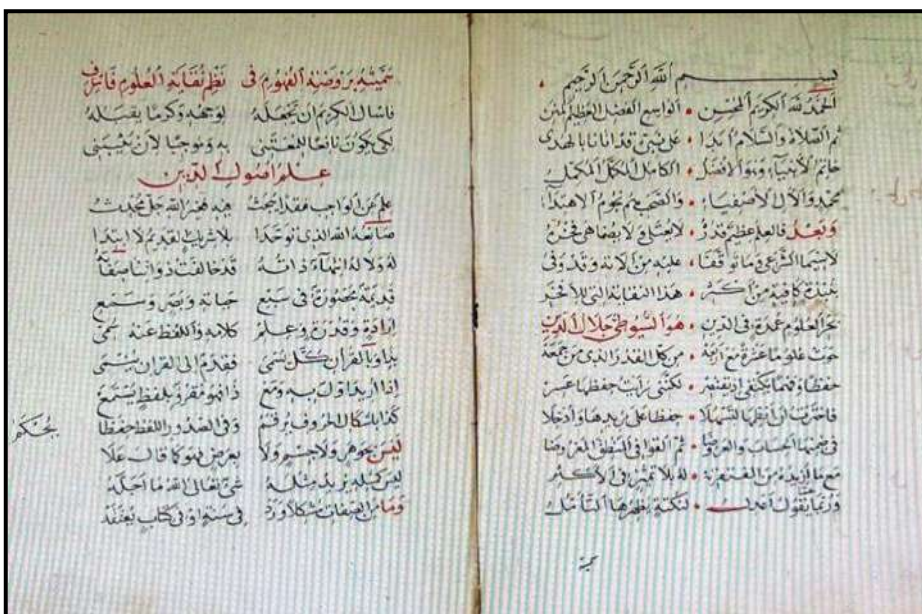 بسم الله الرحمن الرحيم
الحمد لله الكريم المحسن • الواسع الفضل العظيم المنن
ثم الصلاة والسلام أبدا • على نبي قد أتانا بالهدى
خاتم الأنبياء وهو الأفضل • الكامل المكمل
محمد والآل الأصفياء • والصحب هم نجوم الاهتداء
وبعد فالعلم عظيم قدره
لا سيما الشرعي وما توقفا • عليه من آلاته وقد وفى
بنبذة كافية من أكبر • هذا النقاية التي للأخير
بحر العلوم عمدة في الدين • هو السيوطي جلال الدين
حوت علوما عشرة مع أربعة • من كل القدر الذي من جمعه
حفظا وفهما يكتفى إذ يفتقر • لكنني رأيت حفظها عسر
فاخترت أن أنظمها لتسهلا • حفظا على مريدها وأدخلا
في ضمنها الحساب والعروضا • ثم القوافي المنطق المعروضا
مع ما أزيده من • له بلا تميز في الأكثر
وربما يقول • لنكتة يظهرها التأمل
سميته بروضة الفهوم في نظم نقاية العلوم
فاسأل الكريم أن يجعله لوجهه وكرما يقبله
لكي يكون نافعا للمعتني به وموجبا لأن يثيبني
علم أصول الدين
علم عن الواجب فقدا يبحث فيه فغير الله جل محدث
صانعه الله الذي توحدا بلا شريك لقديم لا ابتدا
له ولا له انتهاء ذاته قد خالفت ذواتنا صفاته
قديمة محصورة في سبع حياته وبصر وسمع
إرادة وقدرة وعلم كلامه واللفظ عنه سمي
بذا وبالقرآن كل يسمى فقدم إلى القرآن ينتمى
إذا أريد أول به ومع ذا فهو مقرو بلفظ يستمع
كذا بأشكال الحروف يرقم وفي الصدور اللفظ حفظا يحكم
ليس بجوهر ولا جسم ولا بعرض فهو كما قال علا
ليس كمثله يريد مثله شيء تعالى الله ما أجله
وما من الصفات مشكلا ورد في سنة أو في كتاب يعتقد